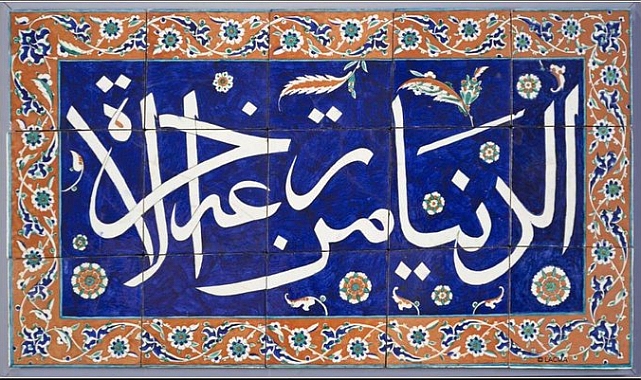 الدنيا مزرعة الاخرة
©LACMA